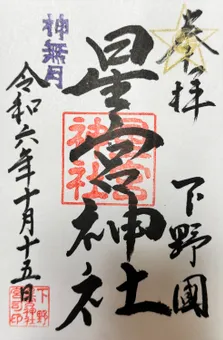 奉拝
下野國
星宮神社
星宮
神社
神無月
令和六年十月十五日